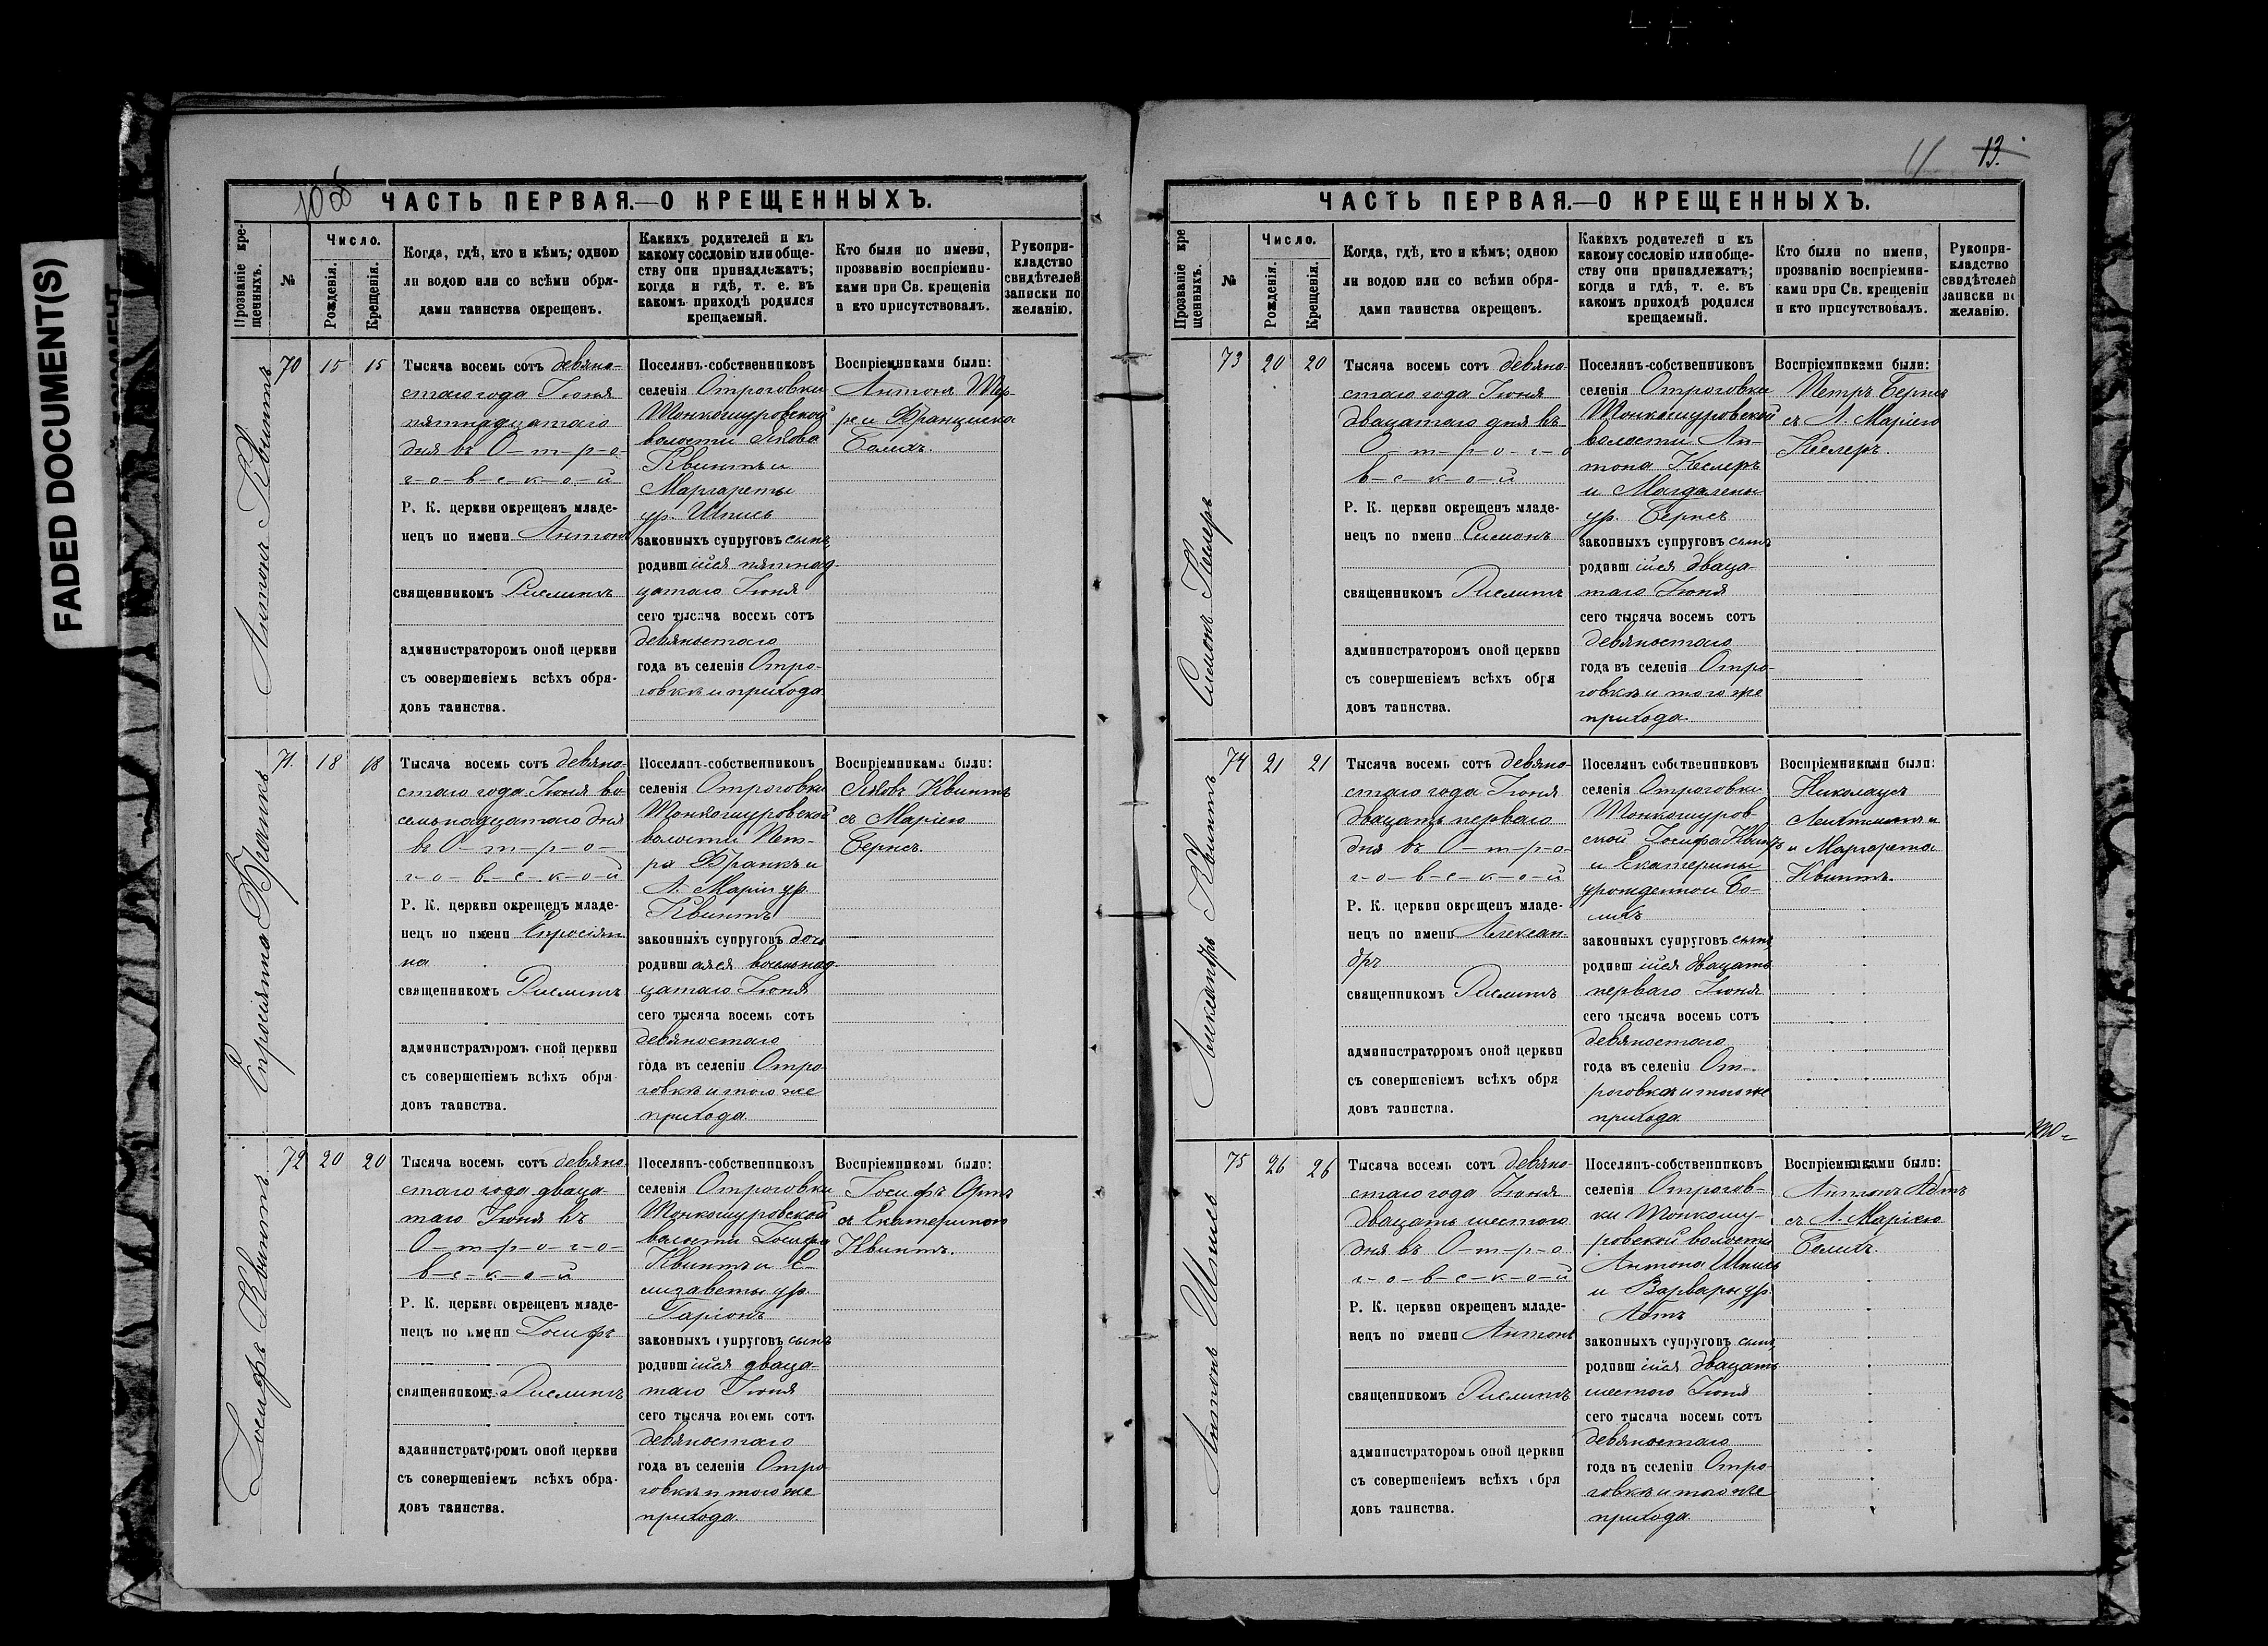 FADED DOCUMENT(S)
10 об
ЧАСТЬ ПЕРВАЯ.—О КРЕЩЕННЫХЪ.
Прозваніе кре-
щенныхъ.
№
Число.
Рожденія.
Крещенія.
Когда, гдѣ, кто и кѣмъ; одною
ли водою или со всѣми обря-
дами таинства окрещенъ.
Какихъ родителей и къ
какому сословію или обще-
ству они принадлежатъ;
когда и гдѣ, т. е. въ
какомъ приходѣ родился
крещаемый.
Кто были по имени,
прозванію воспріемни-
ками при Св. крещеніи
и кто присутствовалъ.
Рукопри-
кладство
свидѣтелей
записки по
желанію.
Антонъ Квинтъ
70
15
15
Тысяча восемь сотъ девяно-
стаго года Іюня
пятнадцатаго
дня въ О-т-р-о-
г-о-в-с-к-о-й
Р. К. церкви окрещенъ младе-
нецъ по имени Антонъ
священникомъ Рислингъ
администраторомъ оной церкви
съ совершеніемъ всѣхъ обря-
довъ таинства.
Поселянъ-собственниковъ
селенія Отроговки
Тонкошуровской
волости Якова
Квинтъ и
Маргареты
ур. Шписъ
законныхъ супруговъ сынъ,
родившійся пятнад-
цатаго Іюня
сего тысяча восемь сотъ
девяностаго
года въ селеніи Отро-
говкѣ и прихода.
Воспріемниками были:
Антонъ
Франциска
Болихъ.
Епросіяна Франкъ
71.
18
18
Тысяча восемь сотъ девяно-
стаго года Іюня во-
семьнадцатаго дня
въ О-т-р-о-
г-о-в-с-к-о-й
Р. К. церкви окрещенъ младе-
нецъ по имени Епросіян-
на
священникомъ Рислингъ
администраторомъ оной церкви
съ совершеніемъ всѣхъ обря-
довъ таинства.
Поселянъ-собственниковъ
селенія Отроговки
Тонкошуровской
волости Пет-
ра Франкъ и
А. Маріи ур.
Квинтъ
законныхъ супруговъ дочь
родившаяся восемьнад-
цатаго Іюня
сего тысяча восемь сотъ
девяностаго
года въ селеніи Отро-
говкѣ и того же
прихода.
Воспріемниками были:
Яковъ Квинтъ
съ Маріею
Бернсъ.
Іосифъ Квинтъ
72
20
20
Тысяча восемь сотъ девяно-
стаго года дваца-
таго Іюня въ
О-т-р-о-г-о-
в-с-к-о-й
Р. К. церкви окрещенъ младе-
нецъ по имени Іосифъ
священникомъ Рислингъ
администраторомъ оной церкви
съ совершеніемъ всѣхъ обря-
довъ таинства.
Поселянъ-собственниковъ
селенія Отроговки
Тонкошуровской
волости Іосифа
Квинтъ и Е-
лизаветы ур.
Гаріонъ
законныхъ супруговъ сынъ
родившійся дваца-
таго Іюня
сего тысяча восемь сотъ
девяностаго
года въ селеніи Отро-
говкѣ и того же
прихода.
Воспріемниками были:
Іосифъ Ортъ
съ Екатериною
Квинтъ.
11
13.
ЧАСТЬ ПЕРВАЯ.—О КРЕЩЕННЫХЪ.
Прозваніе кре
щенныхъ.
№
Число.
Рожденія.
Крещенія.
Когда, гдѣ, кто и кѣмъ; одною
ли водою или со всѣми обря-
дами таинства окрещенъ.
Какихъ родителей и къ
какому сословію или обще-
ству они принадлежатъ;
когда и гдѣ, т. е. въ
какомъ приходѣ родился
крещаемый.
Кто были по имени,
прозванію воспріемни-
ками при Св. крещеніи
и кто присутствовалъ.
Рукопри-
кладство
свидѣтелей
записки по
желанію.
Симонъ Кеслеръ
73
20
20
Тысяча восемь сотъ девяно-
стаго года Іюня
двацатаго дня въ
О-т-р-о-г-о
в-с-к-о-й
Р. К. церкви окрещенъ младе-
нецъ по имени Симонъ
священникомъ Рислингъ
администраторомъ оной церкви
съ совершеніемъ всѣхъ обря
довъ таинства.
Поселянъ-собственниковъ
селенія Отроговки
Тонкошуровской
волости Ан-
тона Кеслеръ
и Магдалены
ур. Бернсъ
законныхъ супруговъ сынъ
родившійся дваца-
таго Іюня
сего тысяча восемь сотъ
девяностаго
года въ селеніи Отро-
говкѣ и того же
прихода.
Воспріемниками были:
Петръ Бернсъ
съ А. Маріею
Кеслеръ.
Александръ Квинтъ
74
21
21
Тысяча восемь сотъ девяно-
стаго года Іюня
двацать перваго
дня въ О-т-р-о-
г-о-в-с-к-о-й
Р. К. церкви окрещенъ младе-
нецъ по имени Алексан-
дръ
священникомъ Рислингъ
администраторомъ оной церкви
съ совершеніемъ всѣхъ обря
довъ таинства.
Поселянъ собственниковъ
селенія Отроговки
Тонкошуров-
ской Іосифа Квинтъ
и Екатерины
урожденной Бо-
лихъ
законныхъ супруговъ сынъ,
родившійся двацать
перваго Іюня
сего тысяча восемь сотъ
девяностаго
года въ селеніи От-
роговкѣ и того же
прихода.
Воспріемниками были:
Николаусъ
и Маргарета
Квинтъ.
Антонъ Шписъ
75
26
26
Тысяча восемь сотъ девяно-
стаго года Іюня
двацать шестого
дня въ О-т-р-о
г-о-в-с-к-о-й
Р. К. церкви окрещенъ младе-
нецъ по имени Антонъ
священникомъ Рислингъ
администраторомъ оной церкви
съ совершеніемъ всѣхъ обря
довъ таинства.
Поселянъ-собственниковъ
селенія Отрогов-
ки Тонкошу-
ровской волости
Антона Шписъ
и Варвары ур.
Абтъ
законныхъ супруговъ сынъ,
родившійся двацать
шестого Іюня
сего тысяча восемь сотъ
девяностаго
года въ селеніи Отро-
говкѣ и того же
прихода.
Воспріемниками были:
Антонъ Абтъ
съ А. Маріею
Болихъ.